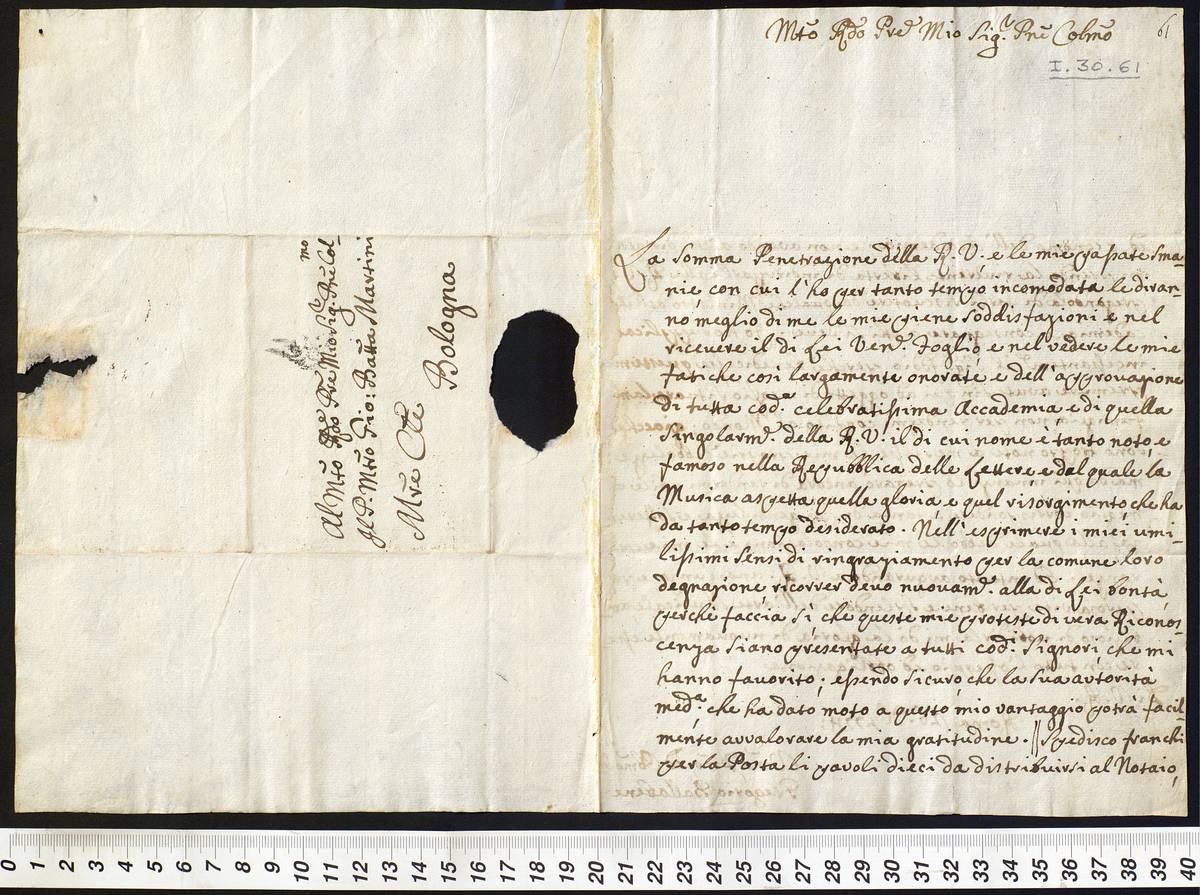 Mto Rdo Pre Mio Sig.r Pne Colmo
61
I. 30. 61
La somma Penetrazione della R. V. e le mie passate sma-
nie con cui l'ho per tanto tempo incomodata le diran-
no meglio di me le mie piene soddisfazioni e nel
ricevere il di Lei Ven.o Foglio, e nel vedere le mie
fatiche così largamente onorate e dell'approvazione
di tutta cod.a celebratissima Accademia e di quella
singolarm.e della R. V. il di cui nome è tanto noto, e
famoso nella Repubblica delle Lettere e dal quale la
Musica aspetta quella gloria e quel risorgimento che ha
da tanto tempo desiderato. Nell'esprimere i miei umi-
lissimi sensi di ringraziamento per la comune loro
degnazione, ricorrer devo nuovam.e alla di Lei bontà
perchè faccia sì che queste mie proteste di vera Ricono-
scenza siano presentate a tutti cod.i Signori, che mi
hanno favorito; essendo sicuro, che la sua autorità
med.a che ha dato moto a questo mio vantaggio potrà facil-
mente avvalorare la mia gratitudine. // Spedisco franchi
per la Posta li pavoli dieci da distribuirsi al Notaio,
Al Mto Rdo Pre Mio Sig.r Pne Col-
mo
Il P. Mro Gio: Batta Martini
Mre Cle
Bologna